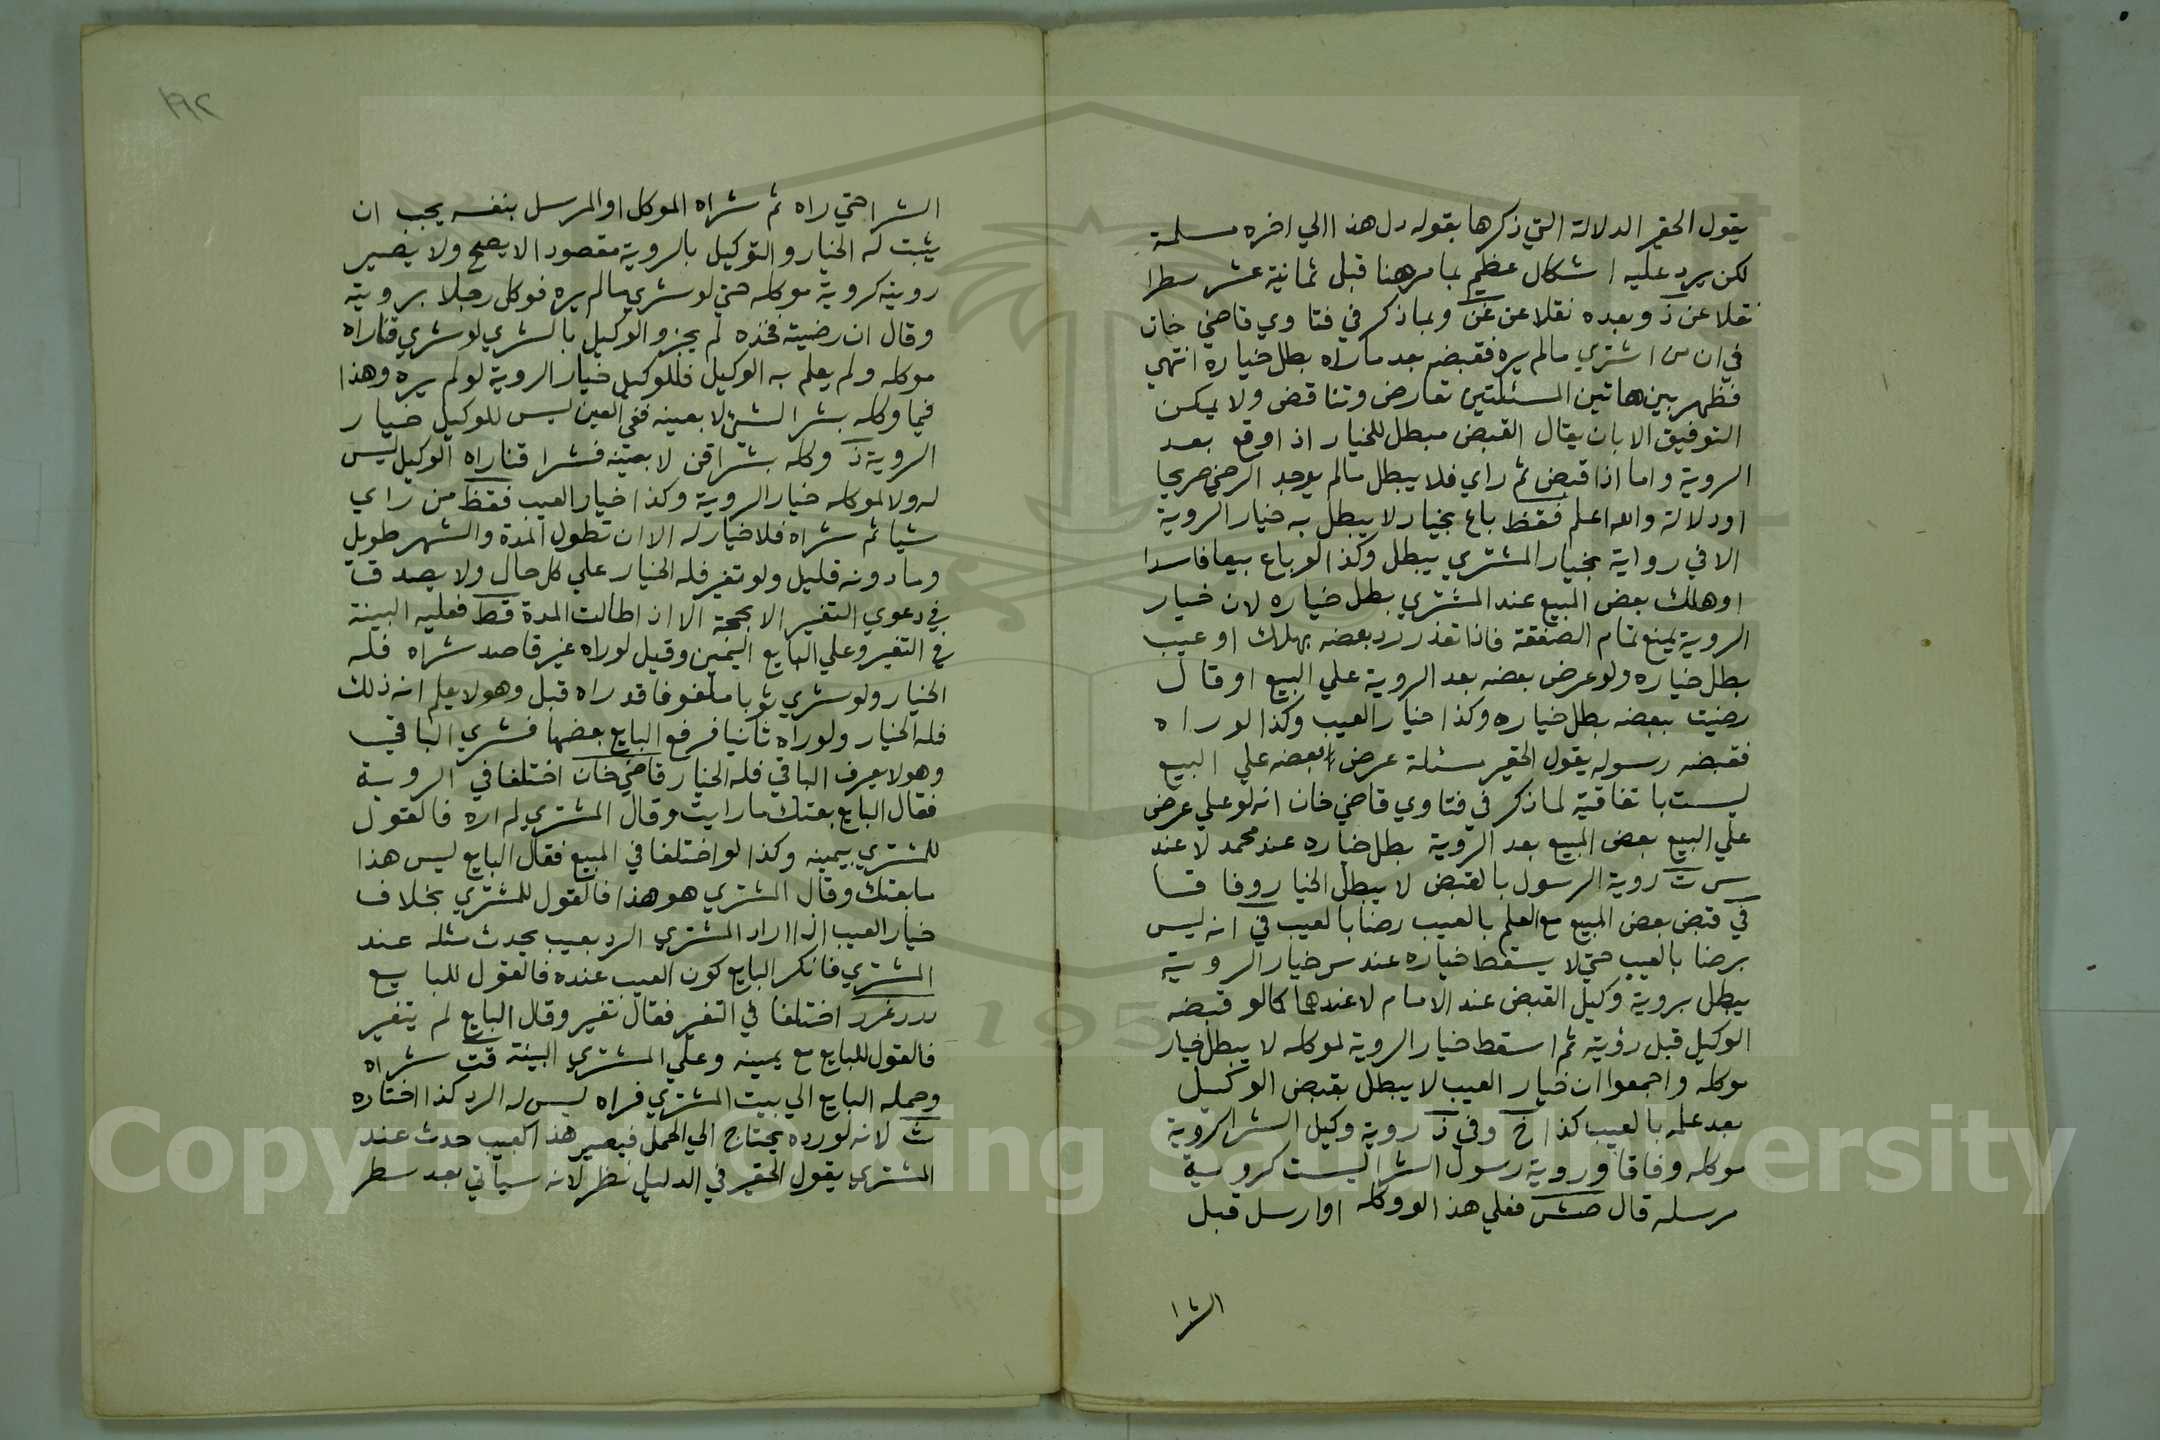 يقول الحقير الدلالة التي ذكرها بقوله دل هذا الي اخره مسلمة
لكن يرد عليه اشكال عظيم بما مر هنا قبل ثمانية عشر سطرا
نقلا عن ذ وبعده نقلا عن عن وبما ذكر في فتاوي قاضي خان
في ان من اشتري مالم يره فقبضه بعد ما راه بطل خياره انتهي
فظهر بين هاتين المسئلتين تعارض وتناقض ولا يمكن
التوفيق الا بان يقال القبض مبطل للخيار اذا وقع بعد
الروية واما اذا قبض ثم راي فلا يبطل مالم يوجد الرضي صريحا
او دلالة والله اعلم فقظ باع بخيار لا يبطل به خيار الروية
الا في رواية بخيار المشتري يبطل وكذا لو باع بيعا فاسدا
او هلك بعض المبيع عند المشتري بطل خياره لان خيار
الروية يمنع تمام الصفقة فاذا تعذر رد بعضه بهلاك او عيب
بطل خياره ولو عرض بعضه بعد الروية علي البيع او قال
رضيت ببعضه بطل خياره وكذا خيار العيب وكذا لو راه
فقبضه رسوله يقول الحقير مسئلة عرض بعضه علي البيع
ليست باتفاقية لما ذكر في فتاوي قاضي خان انه لو علي عرض
علي البيع بعض المبيع بعد الروية بطل خياره عند محمد لا عند
س ت روية الرسول بالقبض لا يبطل الخيار وفاقا
في قبض بعض المبيع مع العلم بالعيب رضا بالعيب في انه ليس
برضا بالعيب حتي لا يسقط خياره عند س خيار الروية
يبطل بروية وكيل القبض عند الامام لا عندهما كما لو قبضه
الوكيل قبل رؤيته ثم اسقط خيار الروية لموكله لا يبطل خيار
موكله واجمعوا ان خيار العيب لا يبطل بقبض الوكيل
بعد علمه بالعيب كذا خ وفي ذ روية وكيل الشرا كروية
موكله وفاقا وروية رسول الشرا ليست كروية
مرسله قال صش فعلي هذا لو وكله او ارسل قبل
الشرا
١٩٢
الشرا حتي راه ثم شراه الموكل او المرسل بنفسه يجب ان
يثبت له الخيار والتوكيل بالروية مقصودا لا يصح ولا يصير
رويته كروية موكله حتي لو شري مالم يره فوكل رجلا برويته
وقال ان رضيته فخذه لم يجز والوكيل بالشري لو شري قنا راه
موكله ولم يعلم به الوكيل فللوكيل خيار الروية لو لم يره وهذا
فيما وكله بشرا لشئ لا بعينه ففي العين ليس للوكيل خيار
الروية ذ وكله بشرا قن لا بعينه فشرا قنا راه الوكيل ليس
له ولا لموكله خيار الروية وكذا خيار العيب فقظ من راي
شيا ثم شراه فلا خيار له الا ان تطول المدة والشهر طويل
وما دونه قليل ولو تغير فله الخيار علي كل حال ولا يصدق
في دعوي التغير الا بحجة الا اذا طالت المدة قط فعليه البينة
في التغير وعلي البايع اليمين وقيل لو راه غير قاصد شراه فله
الخيار ولو شري ثوبا ملفوفا قد راه قبل وهو لا يعلم انه ذلك
فله الخيار ولو راه ثانيا فرفع البايع بعضها فشري الباقي
وهو لا يعرف الباقي فله الخيار قاضي خان اختلفا في الروية
فقال البايع بعتك ما رايت وقال المشتري لم اره فالقول
للمشتري بيمينه وكذا لو اختلفا في المبيع فقال البايع ليس هذا
ما بعتك وقال المشتري هو هذا فالقول للمشتري بخلاف
خيار العيب اذا اراد المشتري الرد بعيب يحدث مثله عند
المشتري فانكر البايع كون العيب عنده فالقول للبايع
درر غرر اختلفا في التغير فقال تغير وقال البايع لم يتغير
فالقول للبايع مع يمينه وعلي المشتري البينة قت شراه
وحمله البايع الي بيت المشتري فراه ليس له الرد كذا اختاره
ث لانه لو رده يحتاج الي الحمل فيصير هذا كعيب حدث عند
المشتري يقول الحقير في الدليل نظر لانه سياتي بعد سطر
Copyright © King Saud University
195